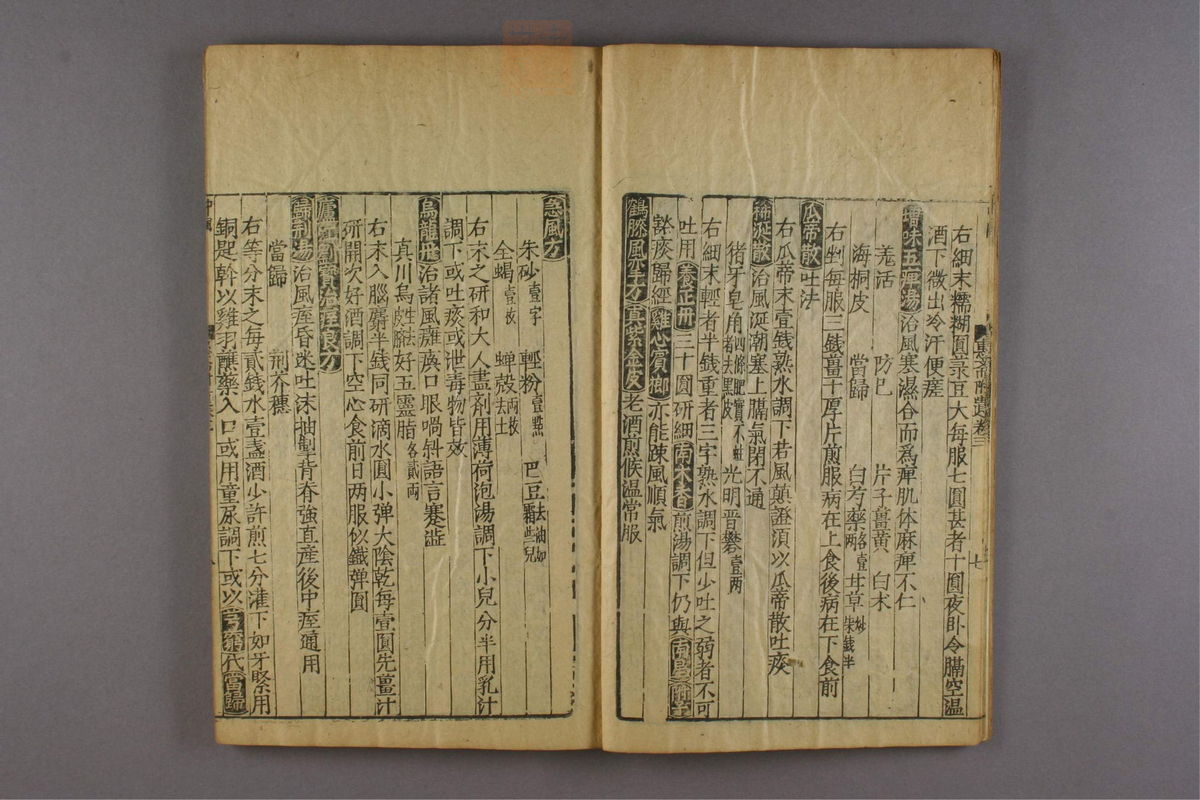 右細末糯糊圓菉豆大每服七圓甚者十圓夜卧令膈空温
酒下微出冷汗便瘥
增味五痹湯治風寒濕合而爲痹肌体麻痹不仁
羌活 防已 片子薑黃 白术
海桐皮 當歸 白芍藥各壹兩 甘草炒柒錢半
右剉每服三錢薑十厚片煎服病在上食後病在下食前
瓜帝散吐法
右瓜帝末壹錢熟水調下若風癲證須以瓜帝散吐痰
稀涎散治風涎潮塞上膈氣閉不通
猪牙皂角四條肥實不蛀者去黑皮 光明晋礬壹两
右細末輕者半錢重者三字熟水調下但少吐之弱者不可
吐用養正丹三十圓研細南木香煎湯調下仍與南星附子
豁痰歸經雞心賓榔亦能疎風順氣
鶴膝風 方真紫金皮老酒煎候温常服
急風方
朱砂壹字 輕粉壹點 巴豆去油如霜些兒
全蝎壹枚 蟬殼兩枚去土
右末之研和大人盡剤用薄荷泡湯調下小兒分半用乳汁
調下或吐痰或泄毒物皆效
烏龍丹治諸風癱瘓口眼喎斜語言蹇澁
真川烏 好五靈脂各貳兩
右末入腦麝半錢同研滴水圓小弹大陰乾每壹圓先薑汁
研開次好酒調下空心食前日两服似鐵弹圓
治痙良方
歸荊湯治風痙昏迷吐沫抽掣背脊強直産後中痙通用
當歸 荊芥穗
右等分末之每貳錢水壹盞酒少許煎七分灌下如牙緊用
銅匙斡以雞羽蘸藥入口或用童尿調下或以芎藭代當歸